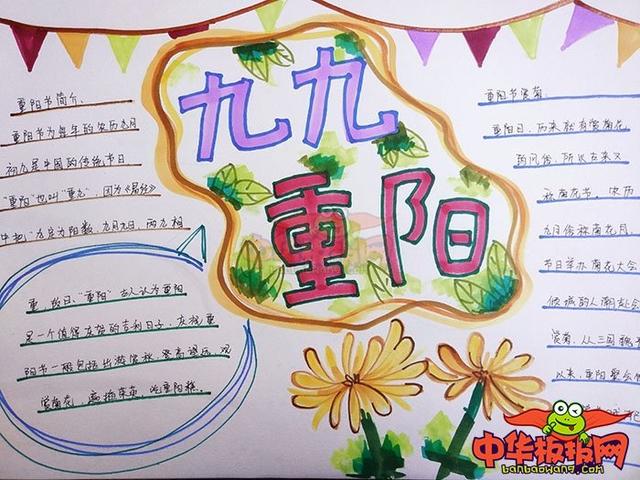 九九
重阳
重阳节简介、
重阳节为每年的农历九月
初九是中国的传统节日
"重阳"也叫"重九"，因为《易经》
中把"九"定为阳数，九月九日，两九相
重，故曰、"重阳"古人认为重阳
是一个值得庆贺的吉利日子、庆祝重
阳节一般包括出游赏秋、登高远眺、观
赏菊花、遍插茱萸、吃重阳糕、
重阳节赏菊、
重阳日，历来就有赏菊花
的风俗，所以古来又
称菊花节、农历
九月俗称菊花月、
节日举办菊花大会
倾城的人潮赴会
赏菊、从三国魏
以来，重阳聚会
中华板报网
banbaowang.com